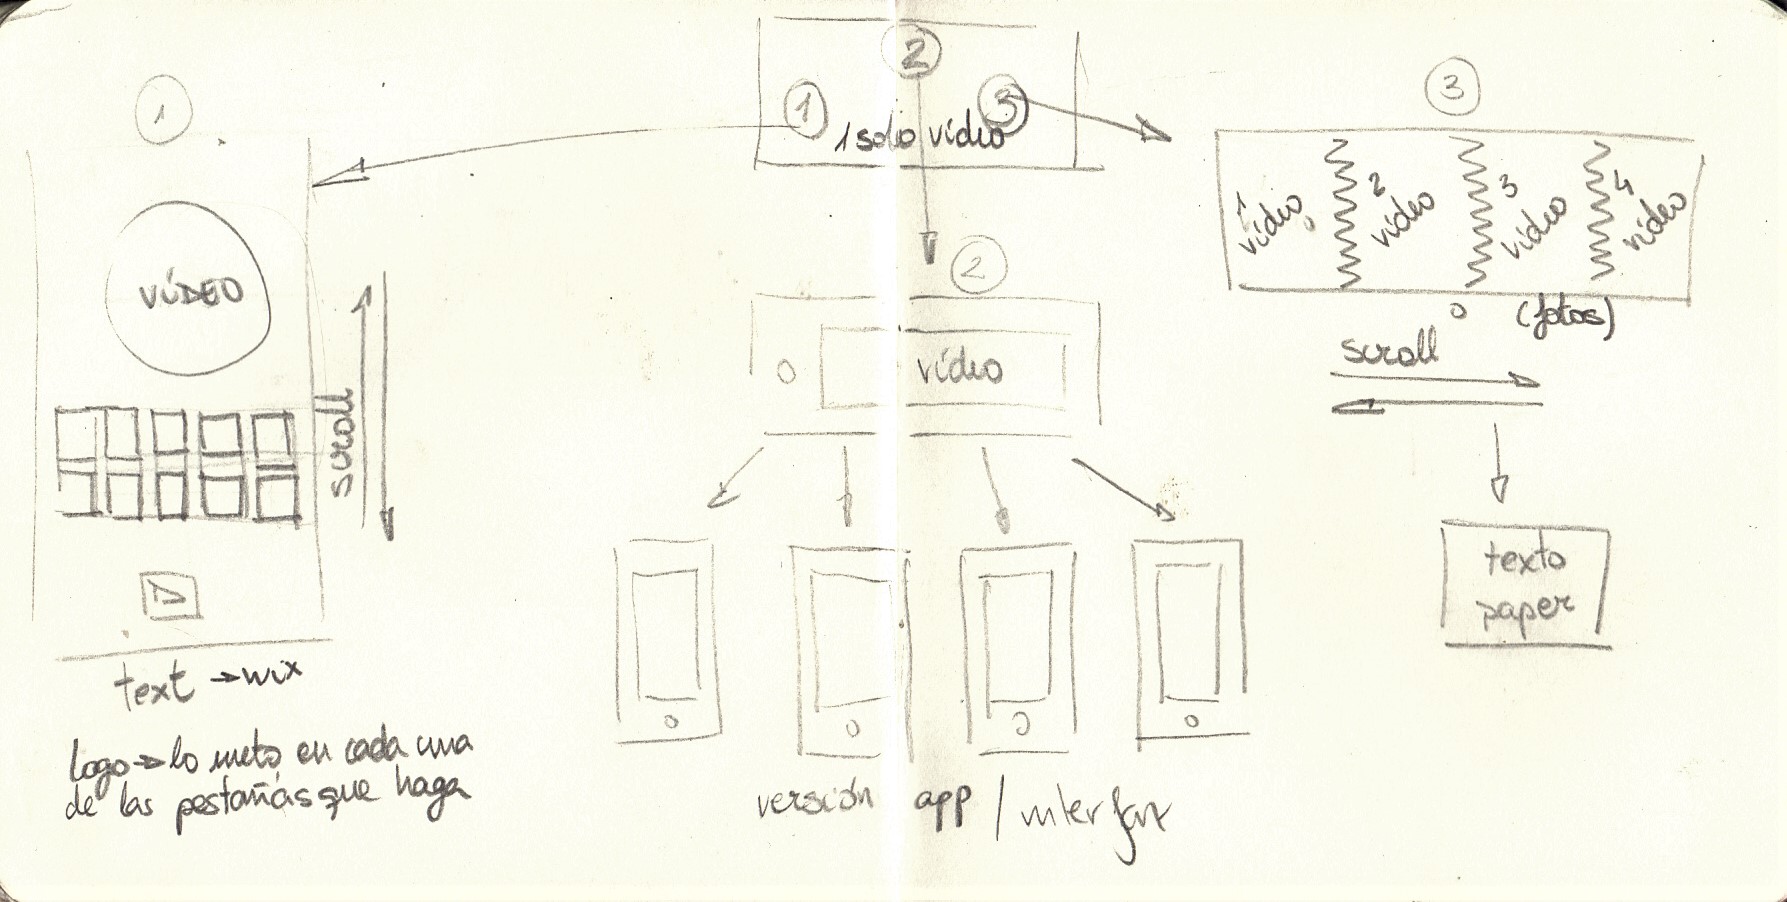 2
1
3
1 solo vídeo
1
VÍDEO
scroll
text → wix
Logo → lo meto en cada una
de las pestañas que haga
2
vídeo
versión app / interfaz
3
1
vídeo
2
vídeo
3
vídeo
4
vídeo
o (fotos)
scroll
texto
paper